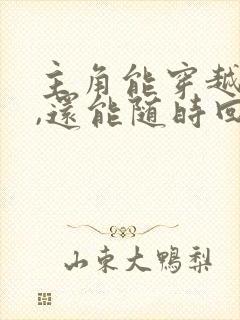 主角能穿越
,還能随時回
山東大鴨梨